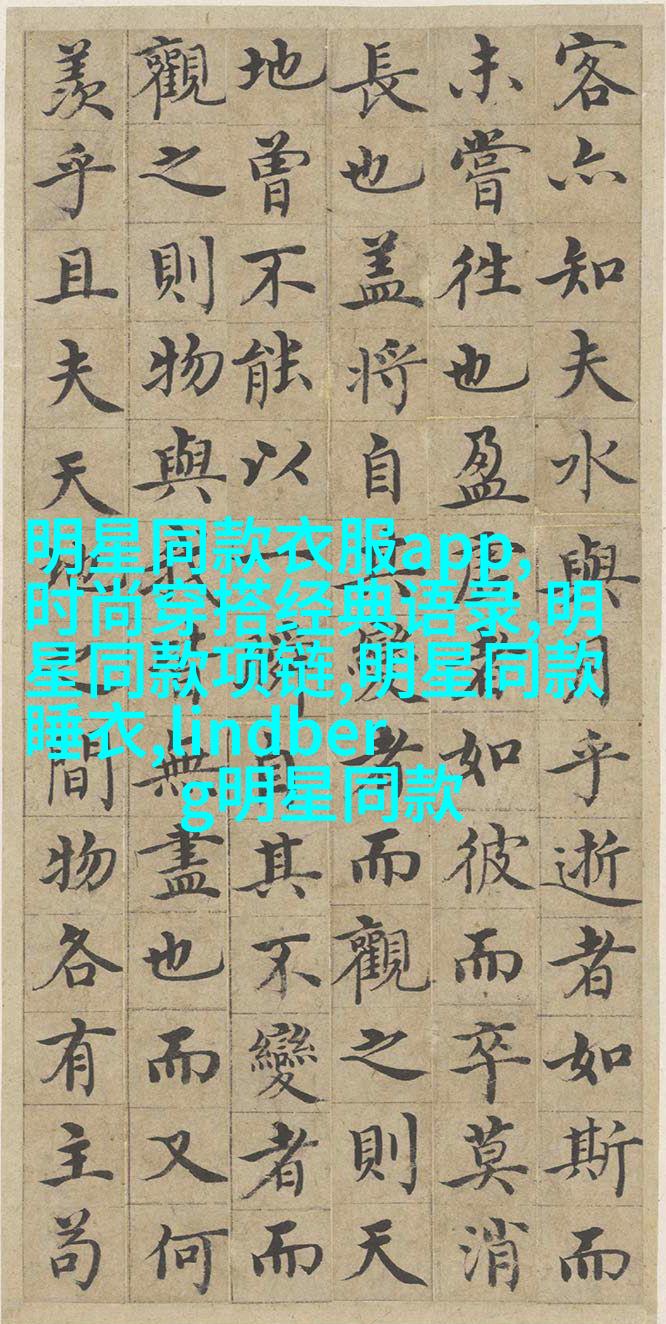 客亦知夫水與月乎逝者如斯而
未嘗徃也盈虛者如彼而卒莫消
長也盖將自其變者而觀之則天
地曾不能以一瞬自其不變者而
觀之則物與我皆無盡也而又何
羨乎且夫天地之間物各有主苟
明星同款衣服app,
时尚穿搭经典语录,明
星同款项链,明星同款
睡衣,lindber
g明星同款